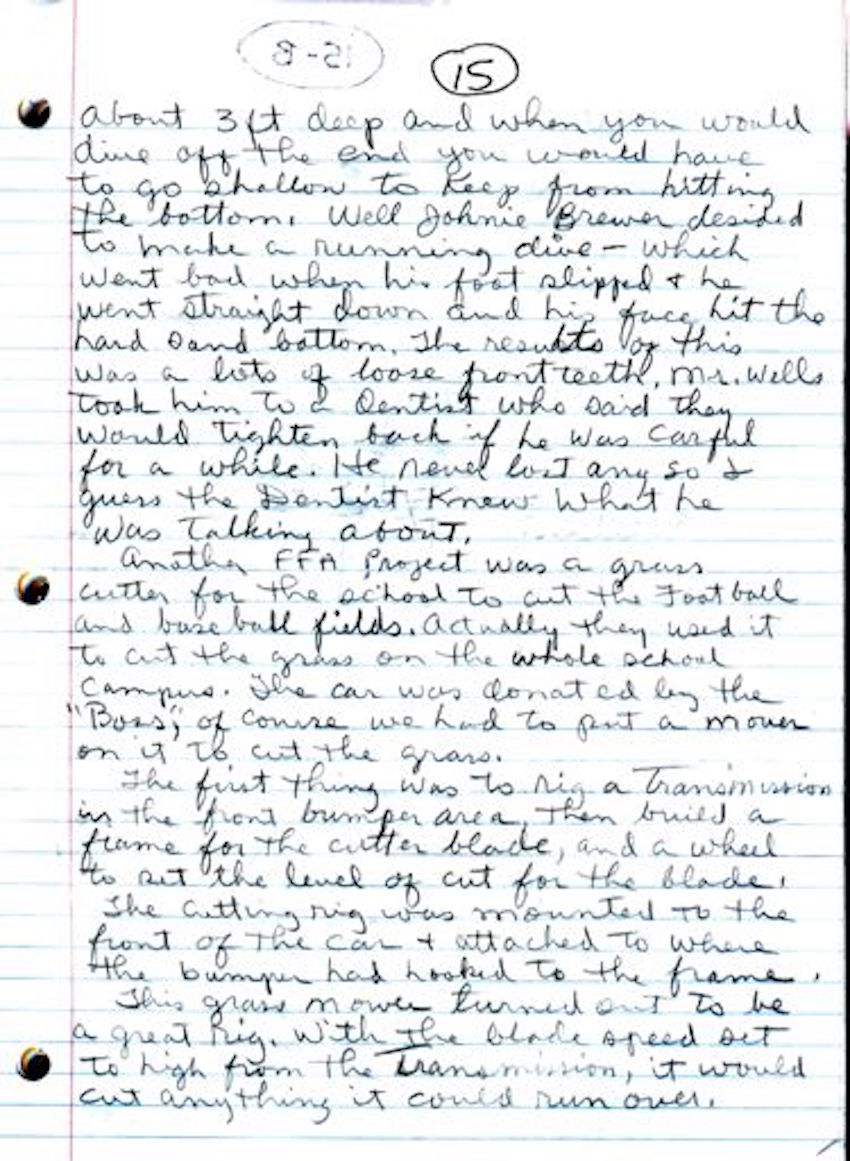 15-B
15
about 3ft deep and when you would
dive off the end you would have
to go shallow to keep from hitting
the bottom. Well Johnie Brewer desided
to make a running dive - which
went bad when his foot slipped & he
went straight down and his face hit the
hard sand bottom. The results of this
was a lots of loose front teeth. Mr. Wells
took him to a Dentist who said they
would tighten back if he was carful
for a while. He never lost any so I
guess the Dentist knew what he
was talking about.
Another FFA Project was a grass
cutter for the school to cut the Football
and baseball fields. Actually they used it
to cut the grass on the whole school
campus. The car was donated by the
"Boss", of course we had to put a mower
on it to cut the grass.
The first thing was to rig a Transmission
in the front bumper area. Then build a
frame for the cutter blade, and a wheel
to set the level of cut for the blade.
The cutting rig was mounted to the
front of the car & attached to where
the bumper had hooked to the frame.
This grass mower turned out to be
a great rig. With the blade speed set
to high from the Transmission, it would
cut anything it could run over.